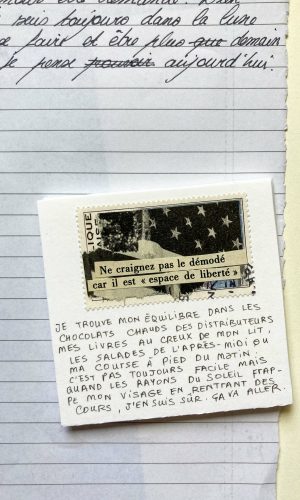 suis toujours dans la lune
faire et être plus que demain
je pense pouvoir aujourd'hui.
LIQUE
AISE
Ne craignez pas le démodé
car il est « espace de liberté »
JE TROUVE MON ÉQUILIBRE DANS LES
CHOCOLATS CHAUDS DES DISTRIBUTEURS
MES LIVRES AU CREUX DE MON LIT,
LES SALADES DE L'APRÈS-MIDI OU
MA COURSE À PIED DU MATIN.
C'EST PAS TOUJOURS FACILE MAIS
QUAND LES RAYONS DU SOLEIL FRAP-
PE MON VISAGE EN RENTRANT DES
COURS, J'EN SUIS SÛR. ÇA VA ALLER.